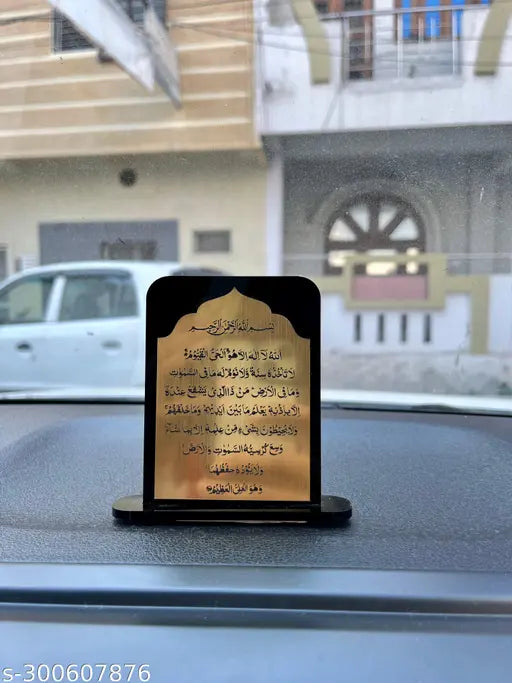 بسم الله الرحمن الرحيم
الله لا اله الا هو الحي القيوم
لا تاخذه سنة ولا نوم له ما في السموت
وما في الارض من ذا الذي يشفع عنده
الا باذنه يعلم ما بين ايديهم وما خلفهم
ولا يحيطون بشيء من علمه الا بما شاء
وسع كرسيه السموت والارض
ولا يؤده حفظهما
وهو العلي العظيم
s-300607876